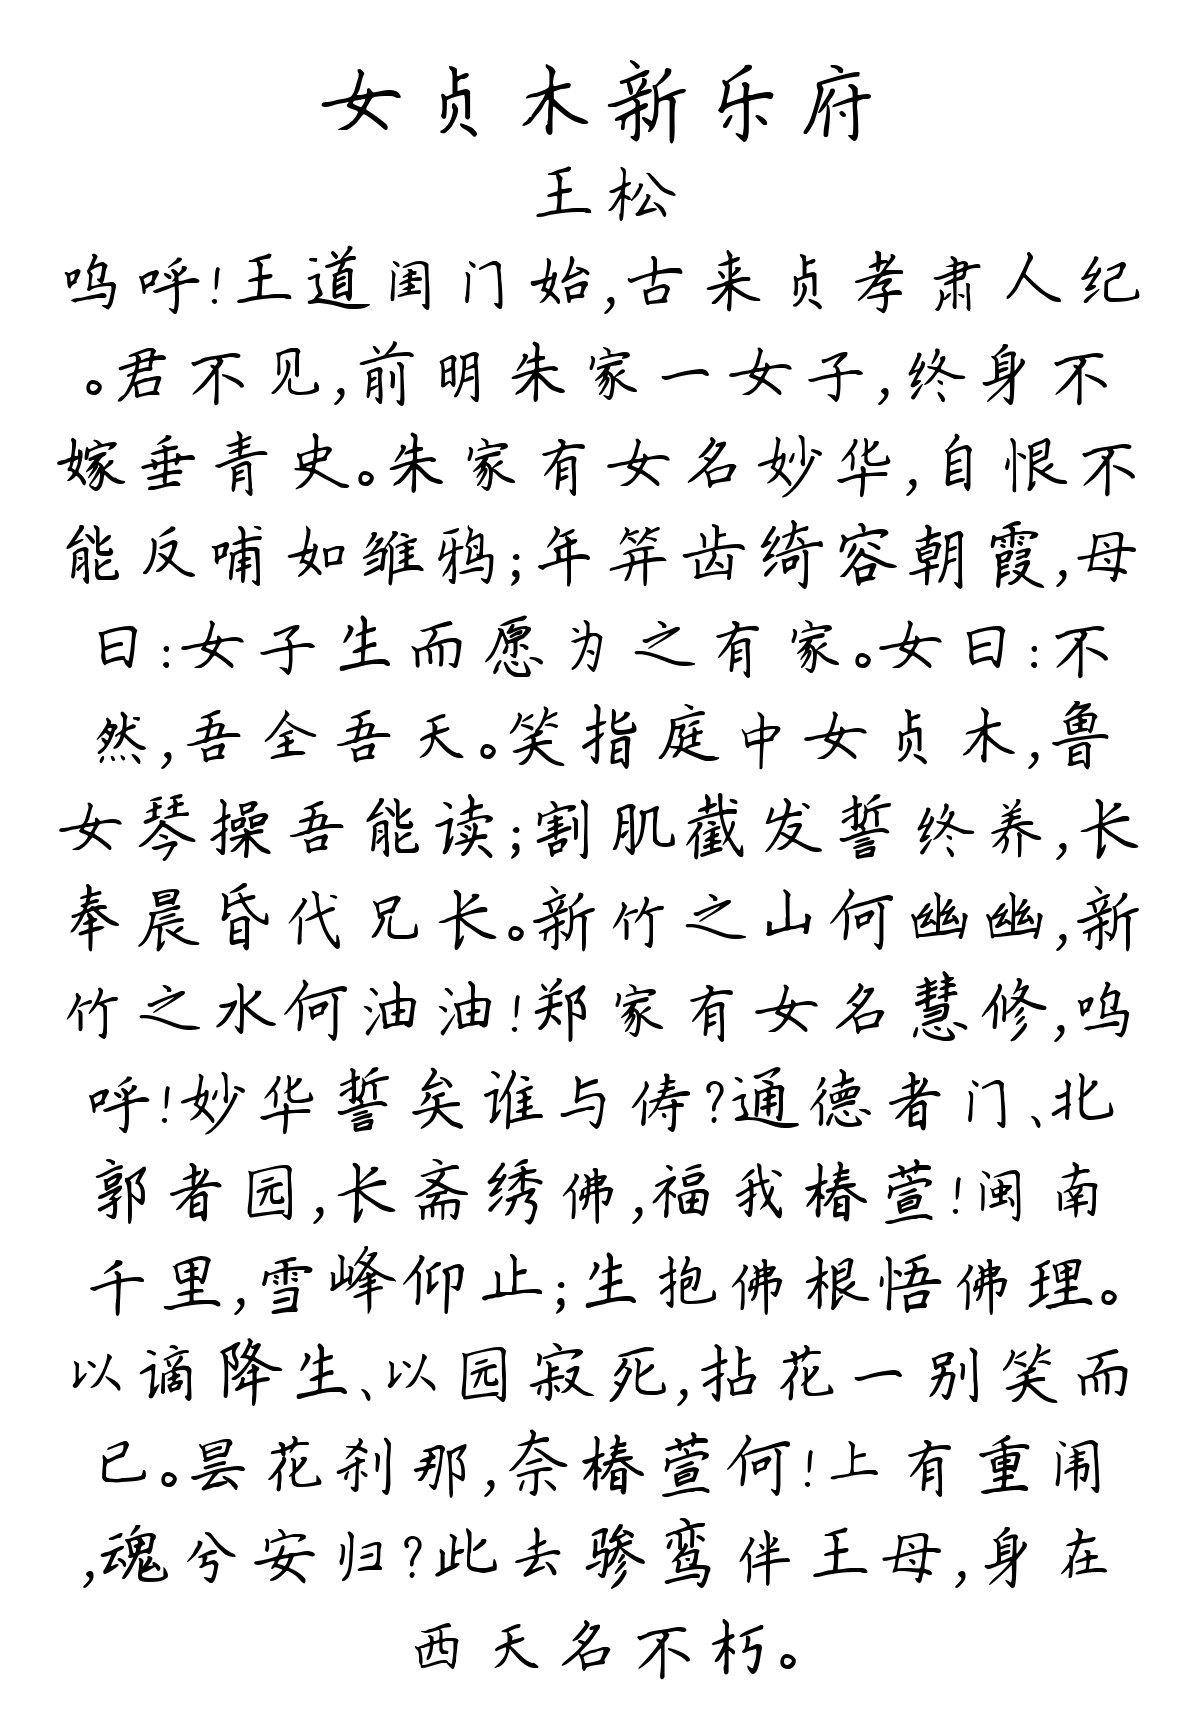 女贞木新乐府
王松
呜呼!王道闺门始,古来贞孝肃人纪
。君不见,前明朱家一女子,终身不
嫁垂青史。朱家有女名妙华,自恨不
能反哺如雏鸦;年笄齿绮容朝霞,母
曰:女子生而愿为之有家。女曰:不
然,吾全吾天。笑指庭中女贞木,鲁
女琴操吾能读;割肌截发誓终养,长
奉晨昏代兄长。新竹之山何幽幽,新
竹之水何油油!郑家有女名慧修,呜
呼!妙华誓矣谁与俦?通德者门、北
郭者园,长斋绣佛,福我椿萱!闽南
千里,雪峰仰止;生抱佛根悟佛理。
以谪降生、以园寂死,拈花一别笑而
已。昙花刹那,奈椿萱何!上有重闱
,魂兮安归?此去骖鸾伴王母,身在
西天名不朽。